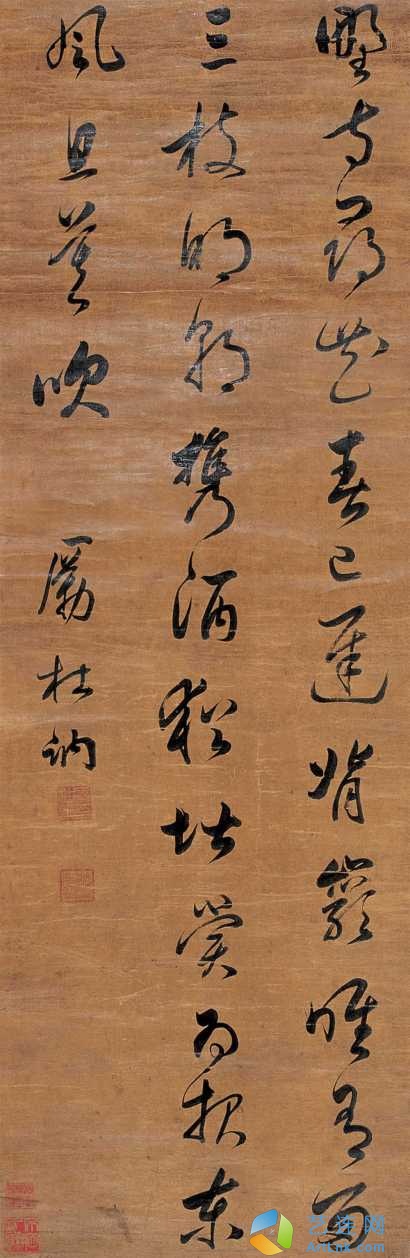 野寺尋花春已遲背巖唯有兩
三枝明朝攜酒猶堪賞為報東
風且莫吹
勵杜訥